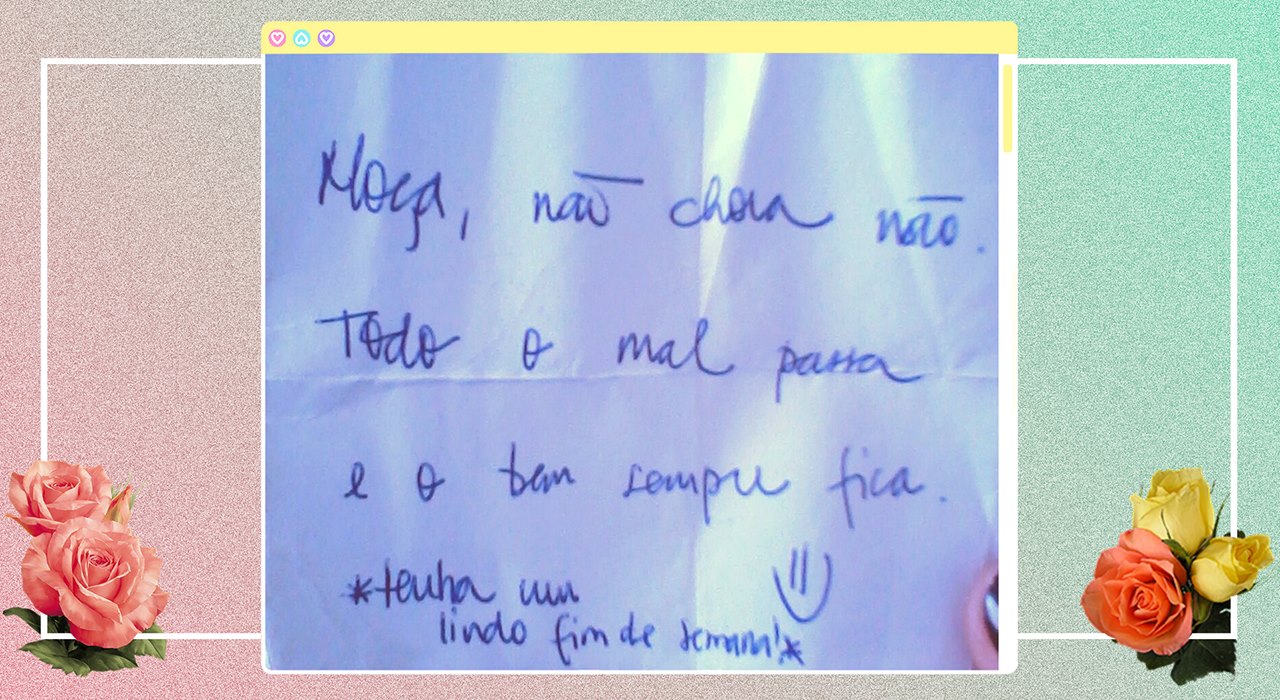 Moça, não chora não.
Todo o mal passa
e o bem sempre fica.
*tenha um
lindo fim de semana!*